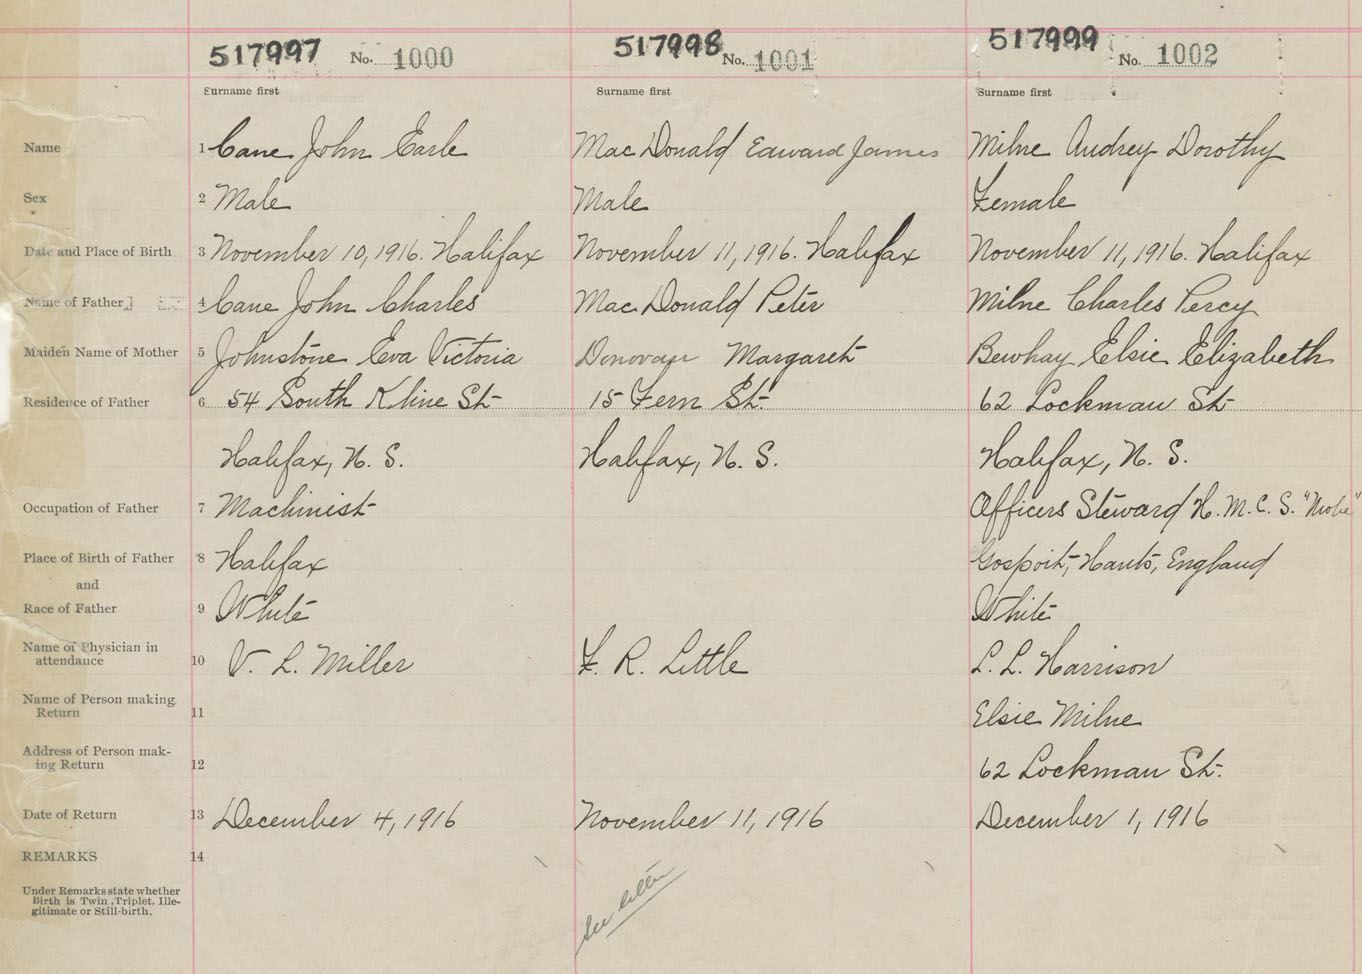 517997 No. 1000 517998 No. 1001 517999 No. 1002
Surname first Surname first Surname first
Name 1 Cane John Earle MacDonald Edward James Milne Audrey Dorothy
Sex 2 Male Male Female
Date and Place of Birth 3 November 10, 1916. Halifax November 11, 1916. Halifax November 11, 1916. Halifax
Name of Father 4 Cane John Charles MacDonald Peter Milne Charles Percy
Maiden Name of Mother 5 Johnstone Eva Victoria Donovan Margaret Bewhay Elsie Elizabeth
Residence of Father 6 54 South Kline St. 15 Fern St. 62 Lockman St.
Halifax, N. S. Halifax, N. S. Halifax, N. S.
Occupation of Father 7 Machinist Officers Steward H. M. C. S. "Niobe"
Place of Birth of Father 8 Halifax Gosport, Hants, England
and
Race of Father 9 White White
Name of Physician in
attendance 10 V. L. Miller F. R. Little L. L. Harrison
Name of Person making
Return 11 Elsie Milne
Address of Person mak-
ing Return 12 62 Lockman St.
Date of Return 13 December 4, 1916 November 11, 1916 December 1, 1916
REMARKS 14
Under Remarks state whether
Birth is Twin, Triplet, Ille-
gitimate or Still-birth.
See letter